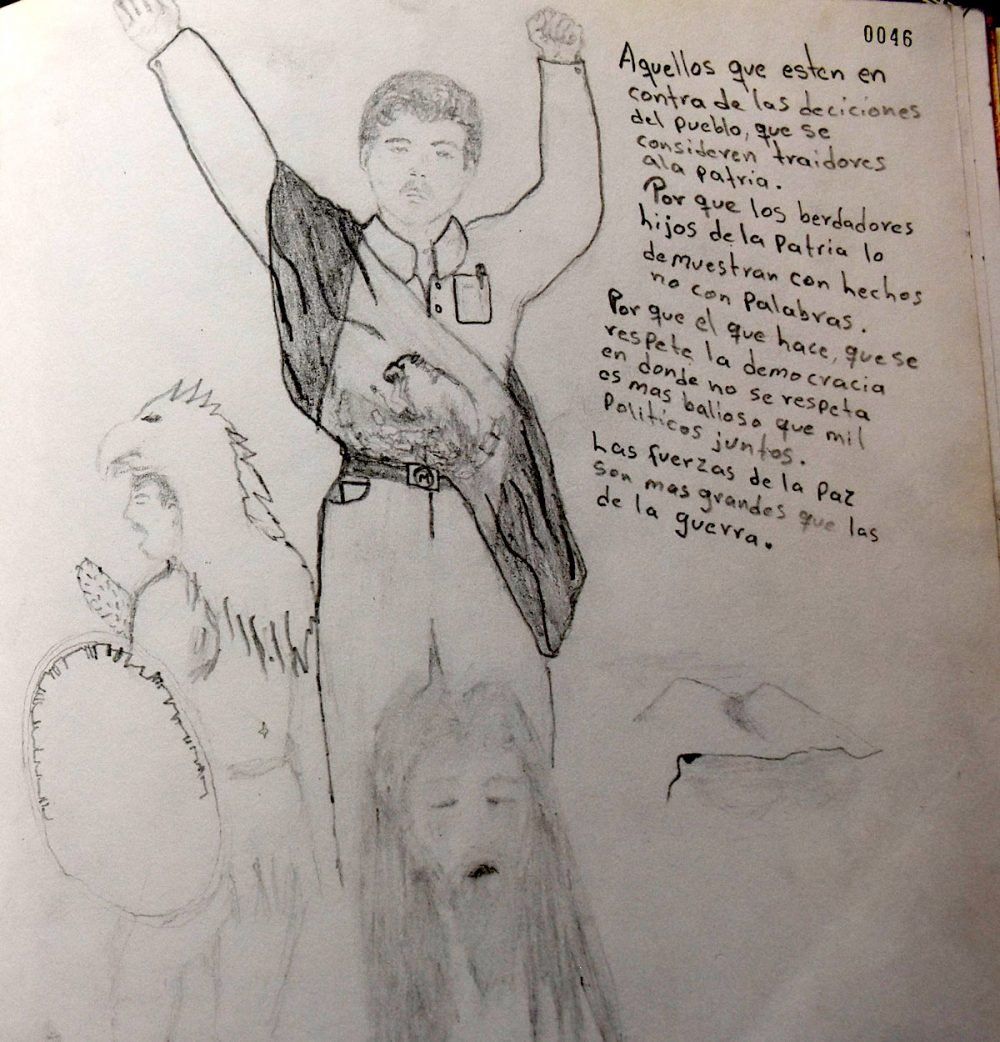 0046
Aquellos que esten en
contra de las deciciones
del pueblo, que se
consideren traidores
ala patria.
Por que los berdadores
hijos de la Patria lo
demuestran con hechos
no con Palabras.
Por que el que hace, que se
respete la democracia
en donde no se respeta
es mas balioso que mil
Politicos juntos.
Las fuerzas de la paz
son mas grandes que las
de la guerra.